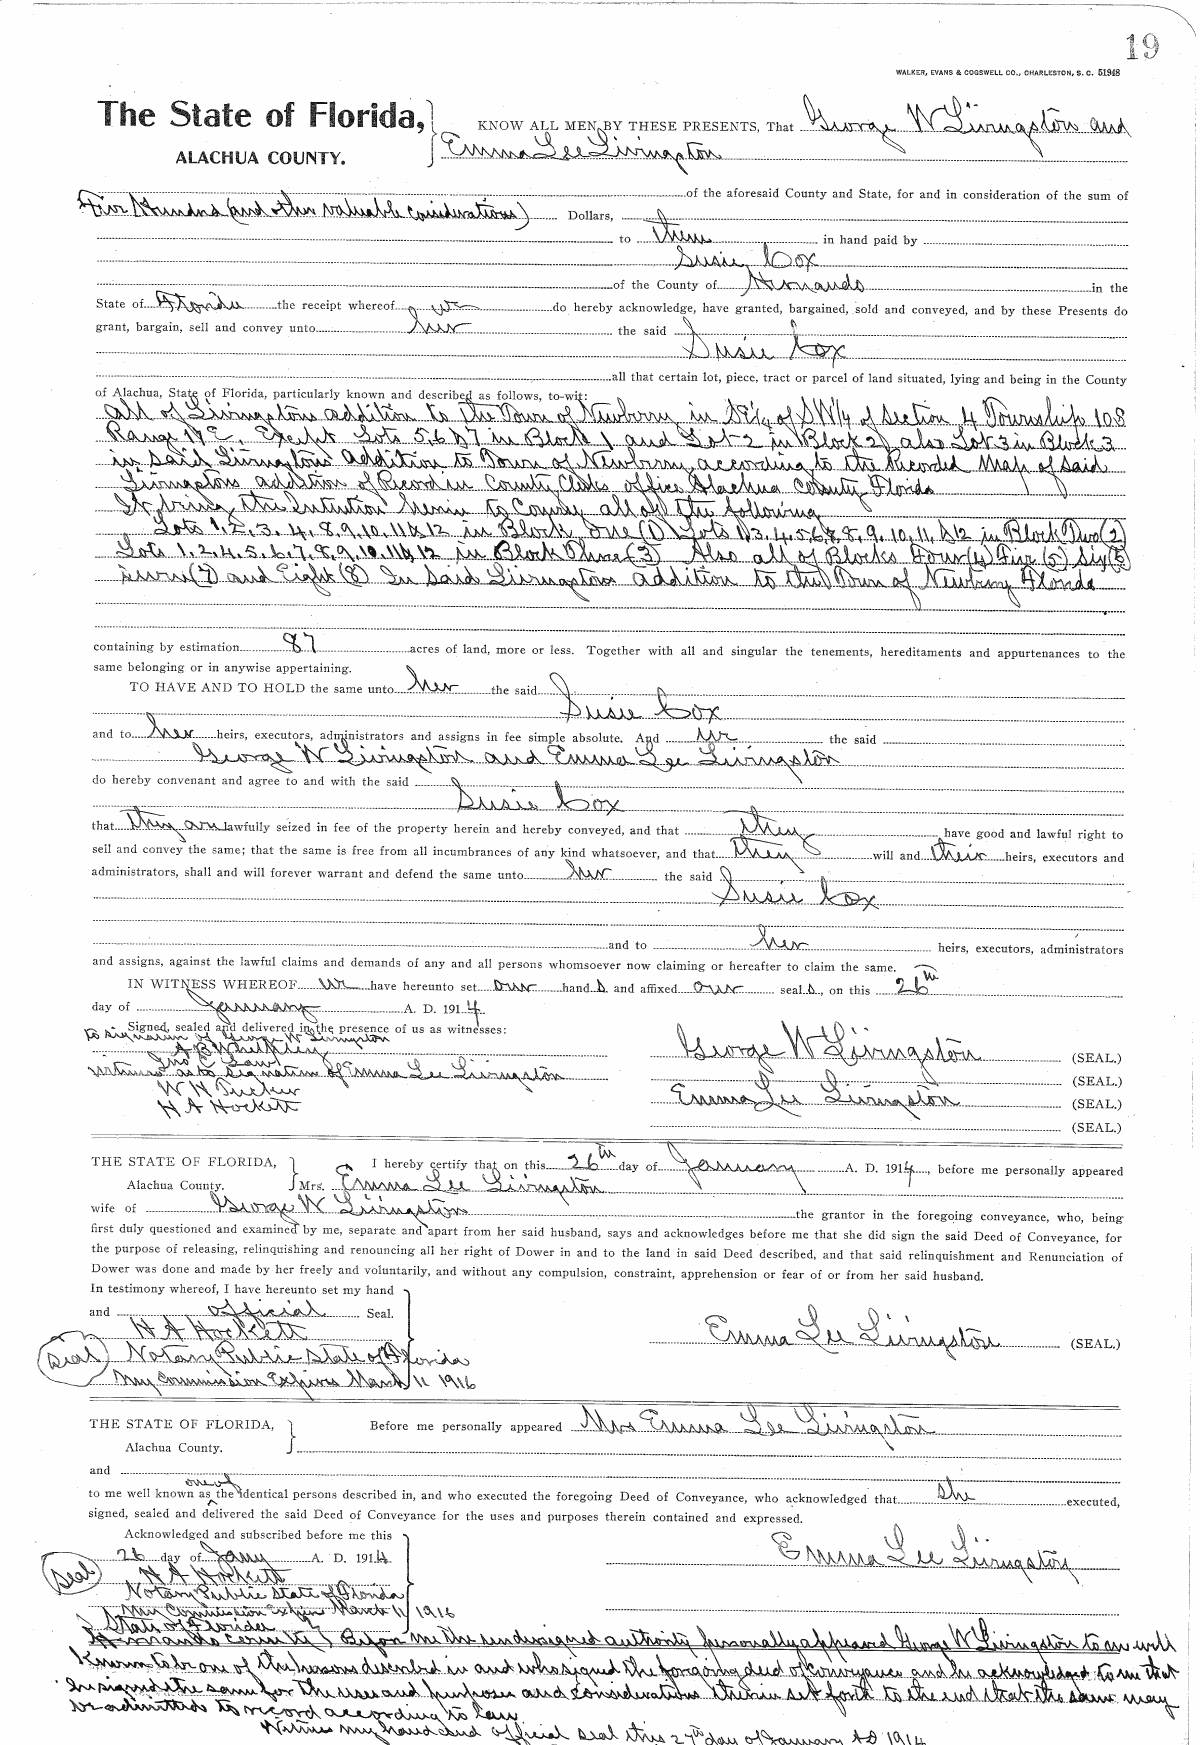 19
WALKER, EVANS & COGSWELL CO., CHARLESTON, S. C. 51948
The State of Florida,
ALACHUA COUNTY.
KNOW ALL MEN BY THESE PRESENTS, That George W Livingston and
Emma Lee Livingston
of the aforesaid County and State, for and in consideration of the sum of
Five Hundred (and other valuable considerations) Dollars,
to them in hand paid by
Susie Cox
of the County of Hernando in the
State of Florida the receipt whereof we do hereby acknowledge, have granted, bargained, sold and conveyed, and by these Presents do
grant, bargain, sell and convey unto her the said
Susie Cox
all that certain lot, piece, tract or parcel of land situated, lying and being in the County
of Alachua, State of Florida, particularly known and described as follows, to-wit:
All of Livingstons addition to the Town of Newberry in of SW¼ of Section 4 Township 10 S
Range 17 E, Except Lots 5, 6 & 7 in Block 1 and Lot 2 in Block 2, also Lot 3 in Block 3
in said Livingstons addition to Town of Newberry according to the Recorded Map of said
Livingstons addition of Record in County Clerks office Alachua County Florida
It being the intention herein to convey all of the following
Lots 1, 2, 3, 4, 8, 9, 10, 11 & 12 in Block One (1) Lots 1, 3, 4, 5, 6, 7, 8, 9, 10, 11, & 12 in Block Two (2)
Lots 1, 2, 4, 5, 6, 7, 8, 9, 10, 11 & 12 in Block Three (3) Also all of Blocks Four (4) Five (5) Six (6)
Seven (7) and Eight (8) In Said Livingstons addition to the Town of Newberry Florida
containing by estimation 87 acres of land, more or less. Together with all and singular the tenements, hereditaments and appurtenances to the
same belonging or in anywise appertaining.
TO HAVE AND TO HOLD the same unto her the said
Susie Cox
and to her heirs, executors, administrators and assigns in fee simple absolute. And we the said
George W Livingston and Emma Lee Livingston
do hereby convenant and agree to and with the said
Susie Cox
that they are lawfully seized in fee of the property herein and hereby conveyed, and that they have good and lawful right to
sell and convey the same; that the same is free from all incumbrances of any kind whatsoever, and that they will and their heirs, executors and
administrators, shall and will forever warrant and defend the same unto her the said
Susie Cox
and to her heirs, executors, administrators
and assigns, against the lawful claims and demands of any and all persons whomsoever now claiming or hereafter to claim the same.
IN WITNESS WHEREOF we have hereunto set our hand s and affixed our seal s, on this 26th
day of January A. D. 1914.
Signed, sealed and delivered in the presence of us as witnesses:
to signature of George W Livingston
A B Whelpley
Jno C Law
Witness as to signature of Emma Lee Livingston
W H Tucker
H A Hockett
George W Livingston (SEAL.)
(SEAL.)
Emma Lee Livingston (SEAL.)
(SEAL.)
THE STATE OF FLORIDA,
Alachua County.
I hereby certify that on this 26th day of January A. D. 1914, before me personally appeared
Mrs. Emma Lee Livingston
wife of George W Livingston the grantor in the foregoing conveyance, who, being
first duly questioned and examined by me, separate and apart from her said husband, says and acknowledges before me that she did sign the said Deed of Conveyance, for
the purpose of releasing, relinquishing and renouncing all her right of Dower in and to the land in said Deed described, and that said relinquishment and Renunciation of
Dower was done and made by her freely and voluntarily, and without any compulsion, constraint, apprehension or fear of or from her said husband.
In testimony whereof, I have hereunto set my hand
and official Seal.
H A Hockett
Seal Notary Public State of Florida
My Commission Expires March 11 1916
Emma Lee Livingston (SEAL.)
THE STATE OF FLORIDA,
Alachua County.
Before me personally appeared Mrs Emma Lee Livingston
and
one of
to me well known as the identical persons described in, and who executed the foregoing Deed of Conveyance, who acknowledged that she executed,
signed, sealed and delivered the said Deed of Conveyance for the uses and purposes therein contained and expressed.
Acknowledged and subscribed before me this
26 day of Jany A. D. 1914.
Seal H A Hockett
Notary Public State of Florida
My Commission Expires March 11 1916
Emma Lee Livingston
State of Florida
Hernando County } Before me the undersigned authority personally appeared George W Livingston to me well
Known to be one of the persons described in and who signed the foregoing deed of conveyance and he acknowledged to me that
he signed the same for the uses and purposes and considerations therein set forth to the end that the same may
be admitted to record according to law
Witness my hand and official seal this 27th day of January AD 1914